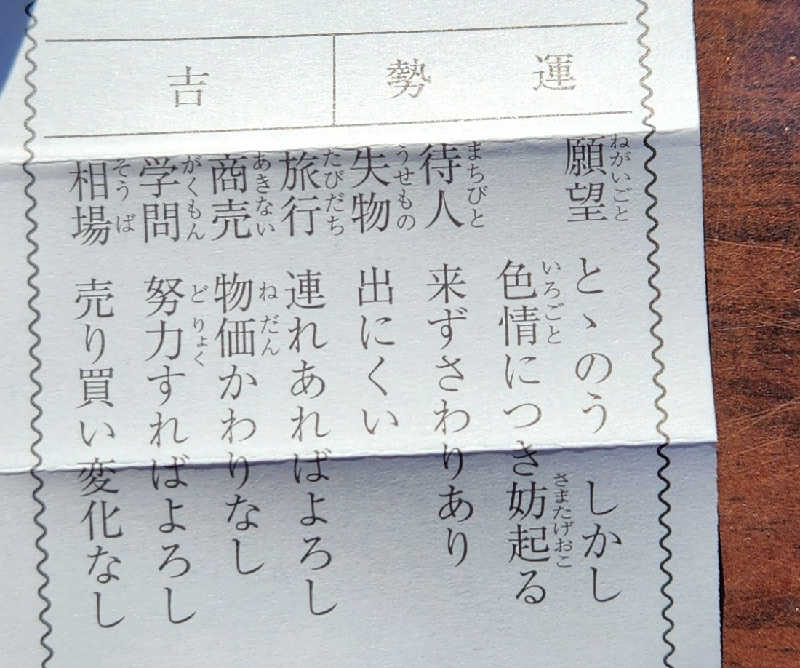 運勢
吉
願望 とゝのう しかし
色情につき妨起る
待人 来ずさわりあり
失物 出にくい
旅行 連れあればよろし
商売 物価かわりなし
学問 努力すればよろし
相場 売り買い変化なし
ねがいごと
いろごと
さまたげおこ
まちびと
うせもの
たびだち
あきない
ねだん
がくもん
どりょく
そうば